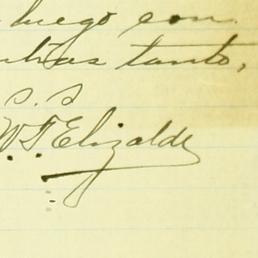 luego con
tanto,
S. S
W. F. Elizalde